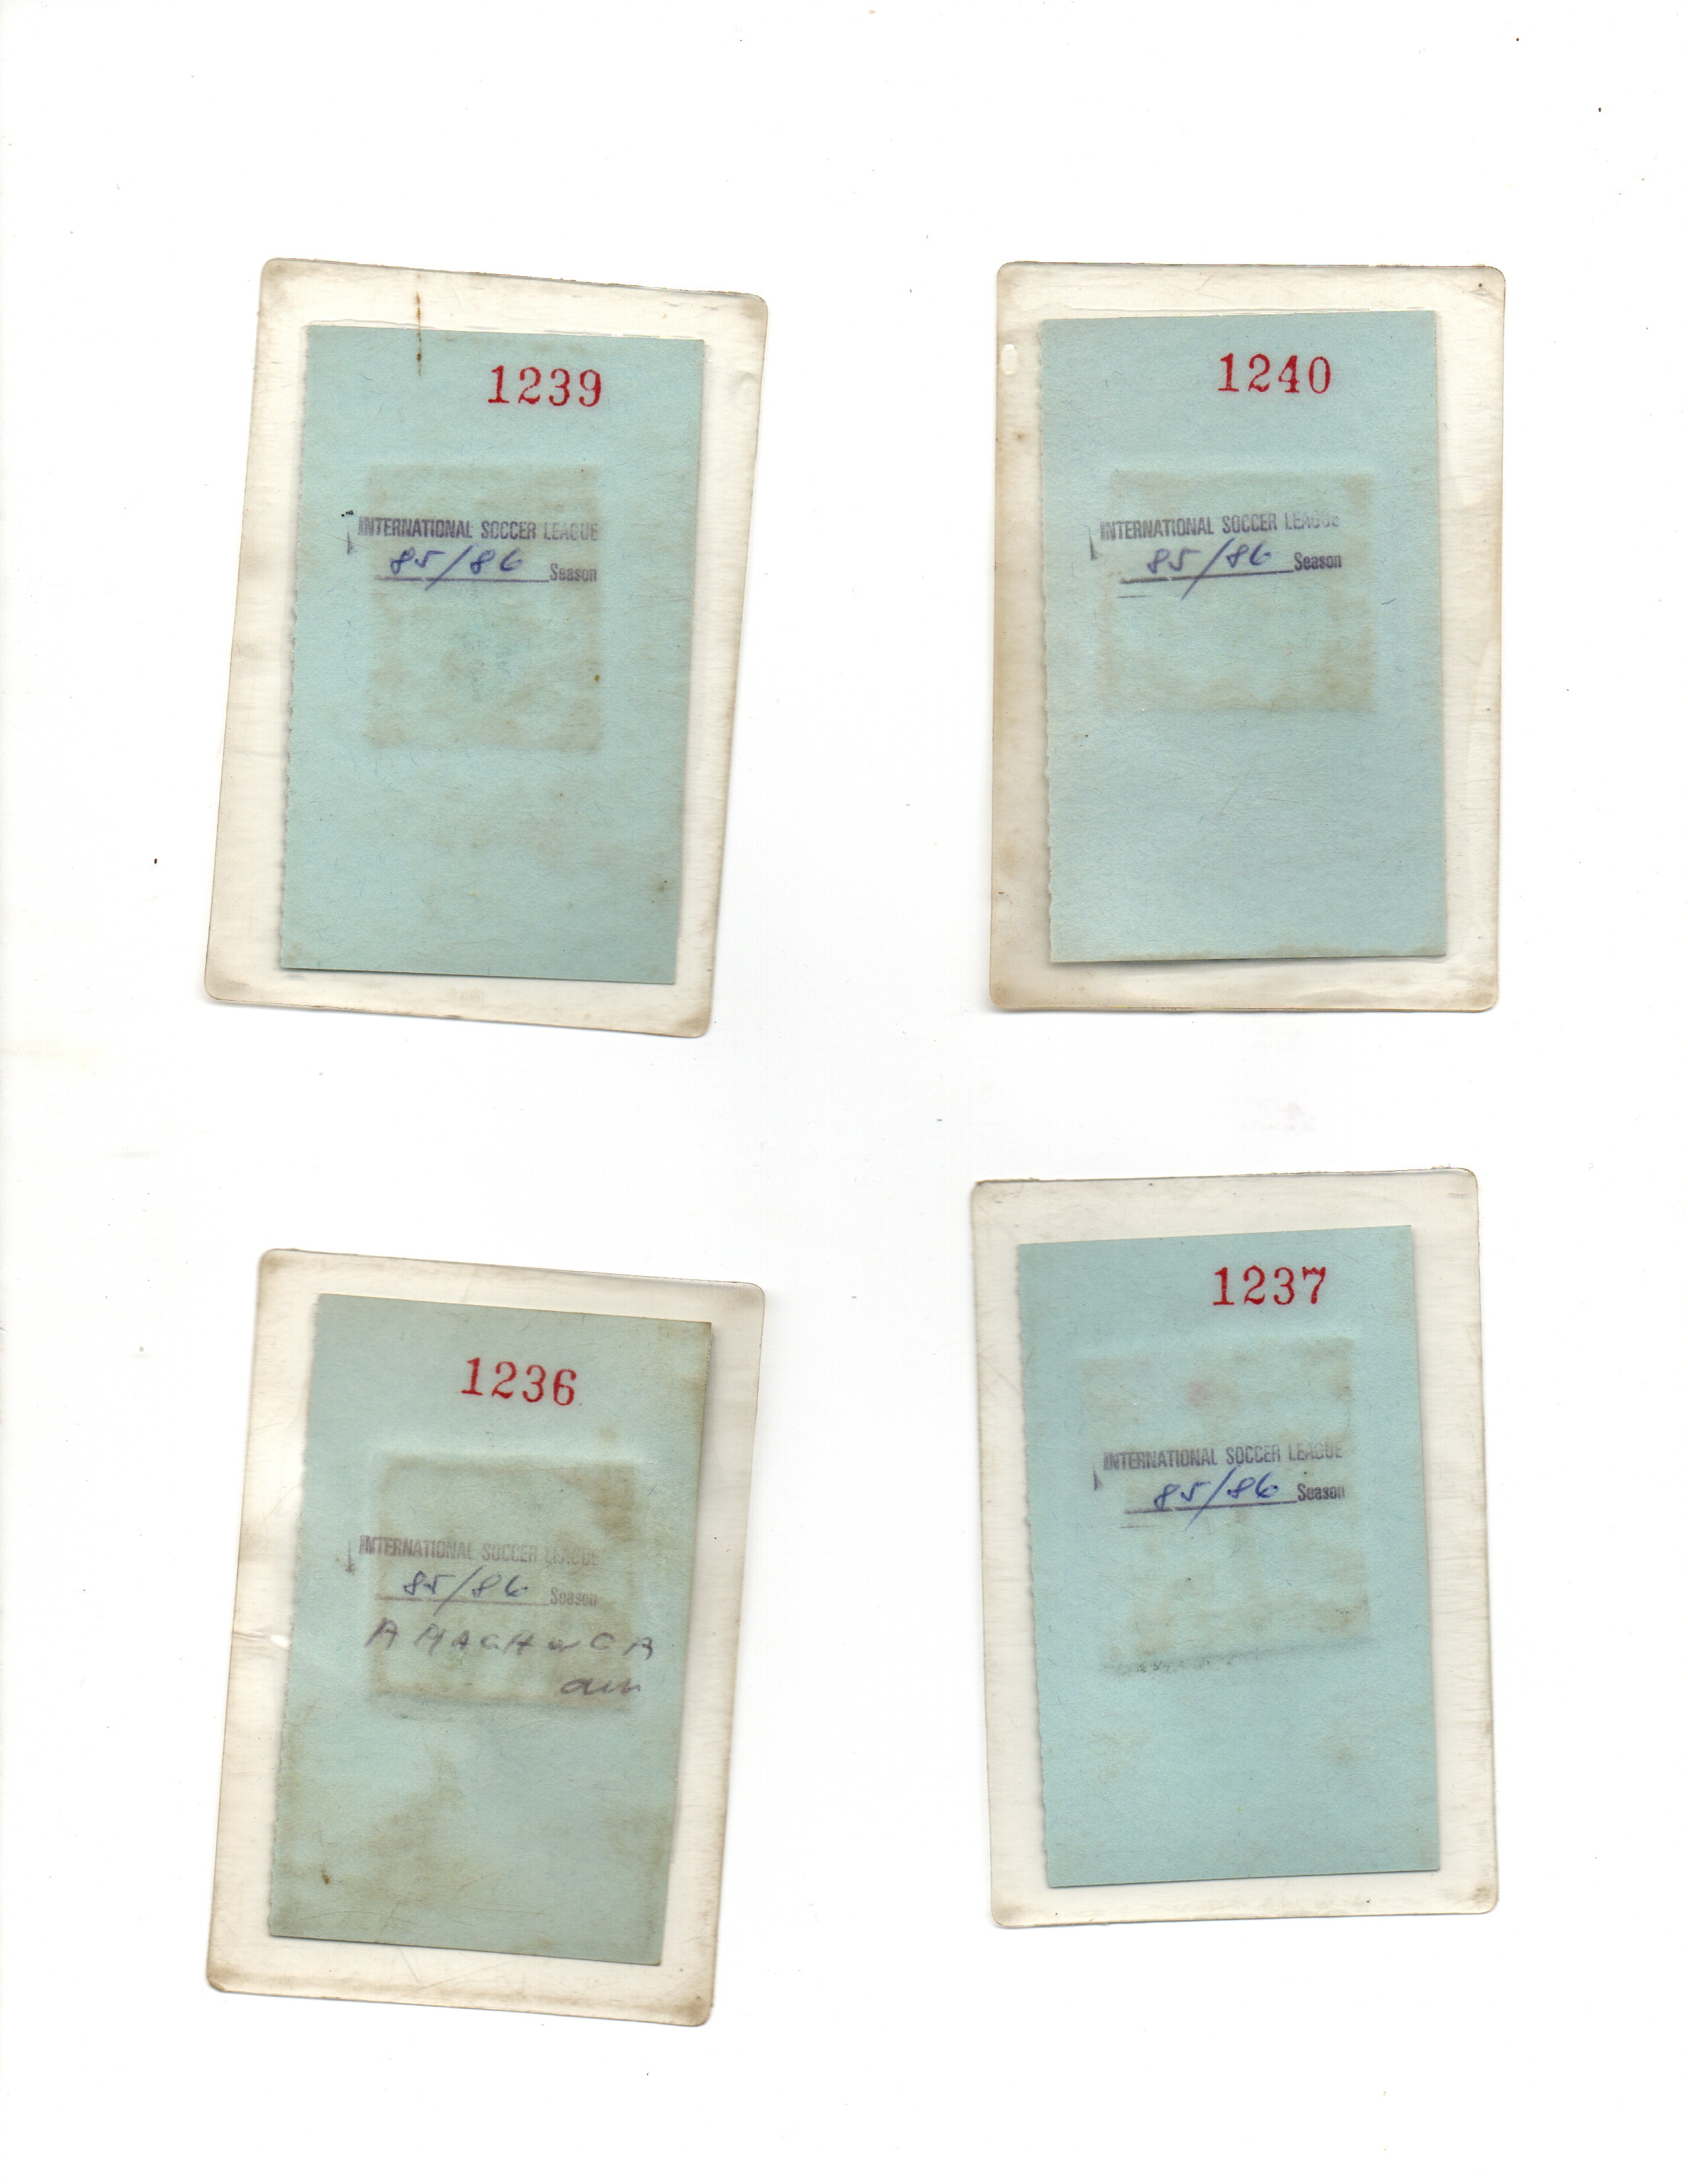 1239
INTERNATIONAL SOCCER LEAGUE
85/86 Season
1240
INTERNATIONAL SOCCER LEAGUE
85/86 Season
1236
INTERNATIONAL SOCCER LEAGUE
85/86 Season
1237
INTERNATIONAL SOCCER LEAGUE
85/86 Season